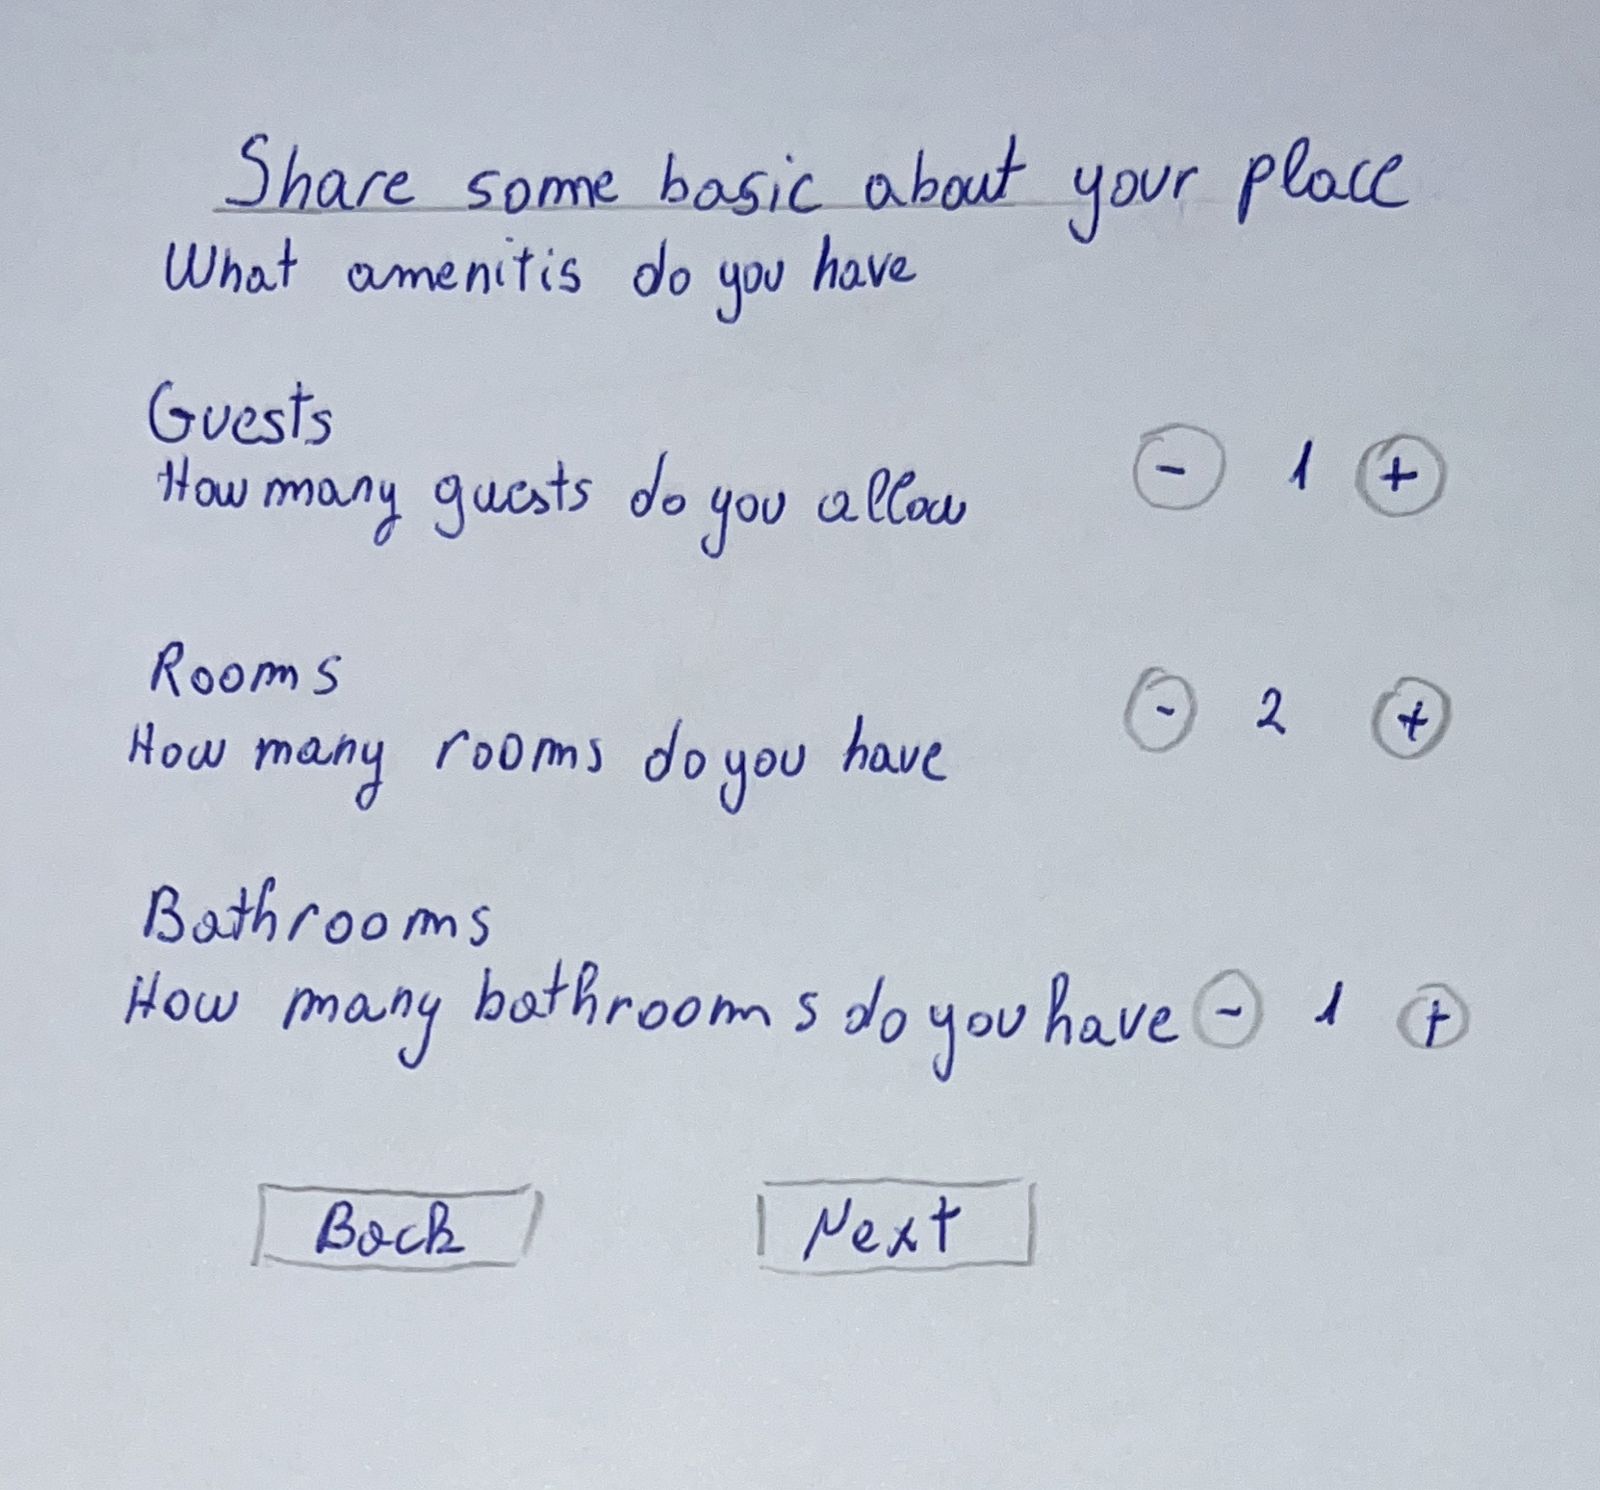 Share some basic about your place
What amenitis do you have
Guests
How many guests do you allow
- 1 +
Rooms
How many rooms do you have
- 2 +
Bathrooms
How many bathrooms do you have - 1 +
Back Next